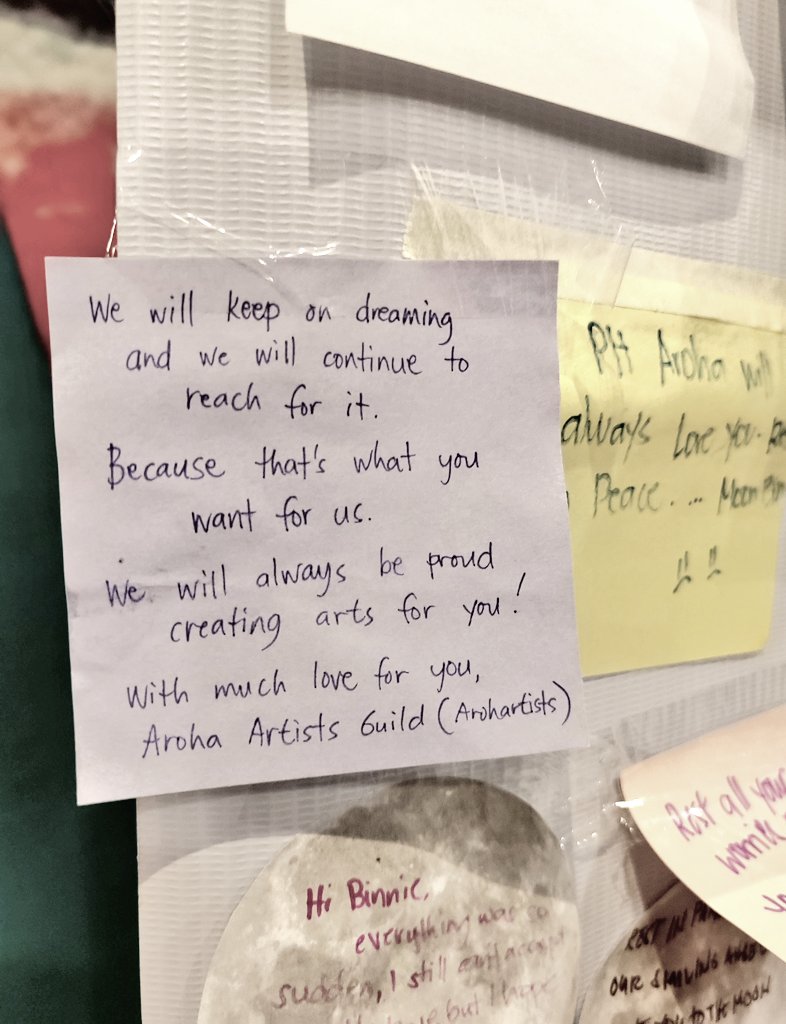 We will keep on dreaming
and we will continue to
reach for it.
Because that's what you
want for us.
We will always be proud
creating arts for you!
With much love for you,
Aroha Artists Guild (Arohartists)
PH Aroha will
always Love you-
Peace.... Moon Bin
Hi Binnie,
everything was so
sudden, I still can't accept
but I hope
Rest all your
REST IN
OUR SMILING ANGEL
TO THE MOON